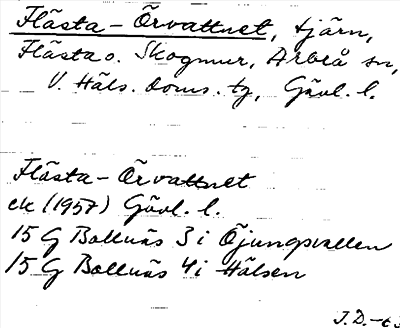 Flästa-Örvattnet, tjärn,
Flästa o. Skogmur, Arbrå sn,
V. Häls. doms. tg, Gävl. l.
Flästa-Örvattnet
ek (1957) Gävl. l.
15 G Bollnäs 3 i Öjungsvallen
15 G Bollnäs 4 i Hälsen
J.D.-63